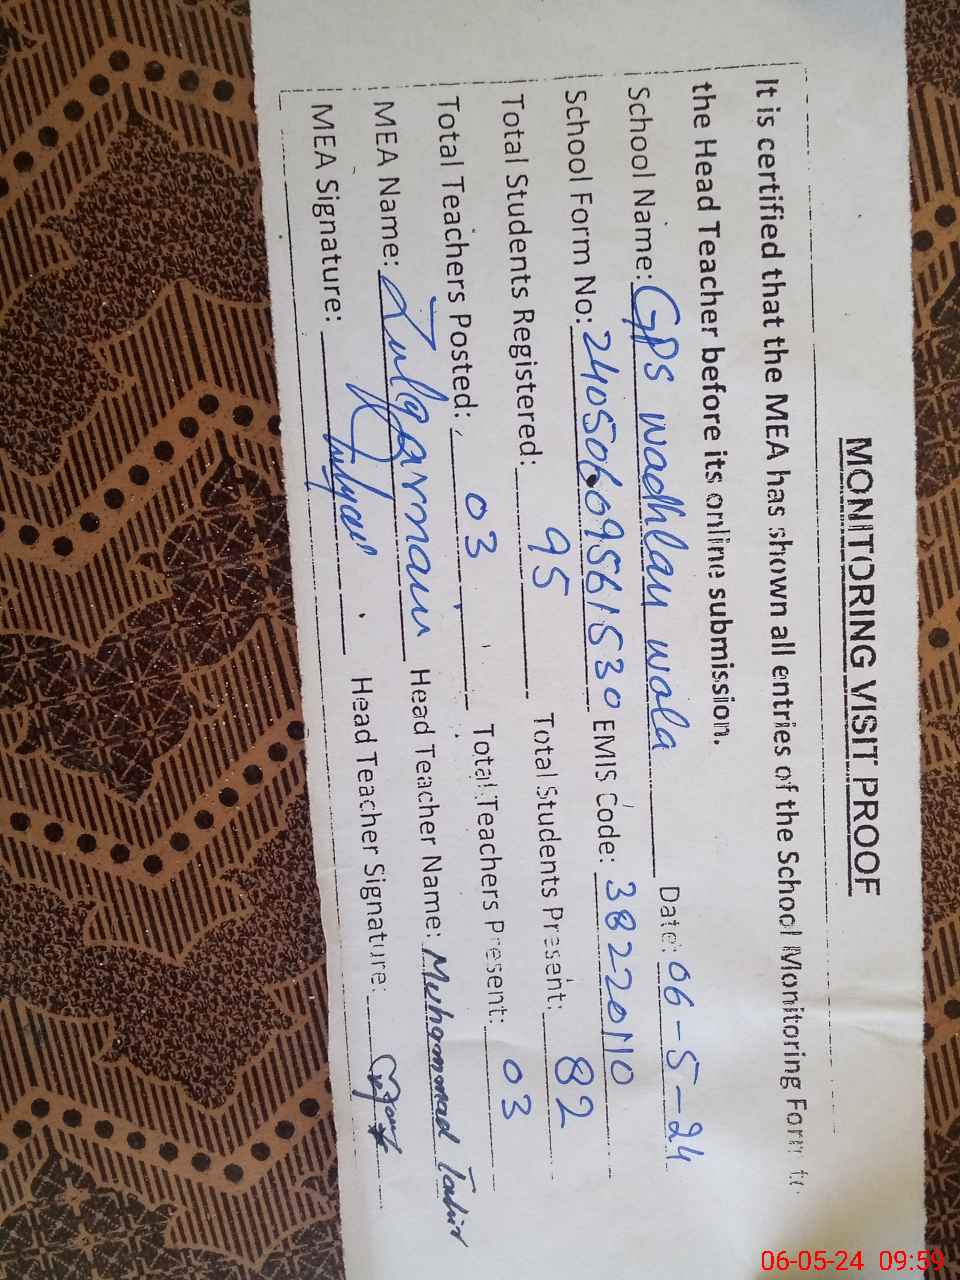 MONITORING VISIT PROOF
It is certified that the MEA has shown all entries of the School Monitoring Form to
the Head Teacher before its online submission.
School Name: GPS wadhlan wala Date: 06-5-24
School Form No: 24050609561530 EMIS Code: 38220110
Total Students Registered: 95 Total Students Present: 82
Total Teachers Posted: 03 Total Teachers Present: 03
MEA Name: Zulqarnain Head Teacher Name: Muhammad Tahir
MEA Signature: Head Teacher Signature:
06-05-24 09:59